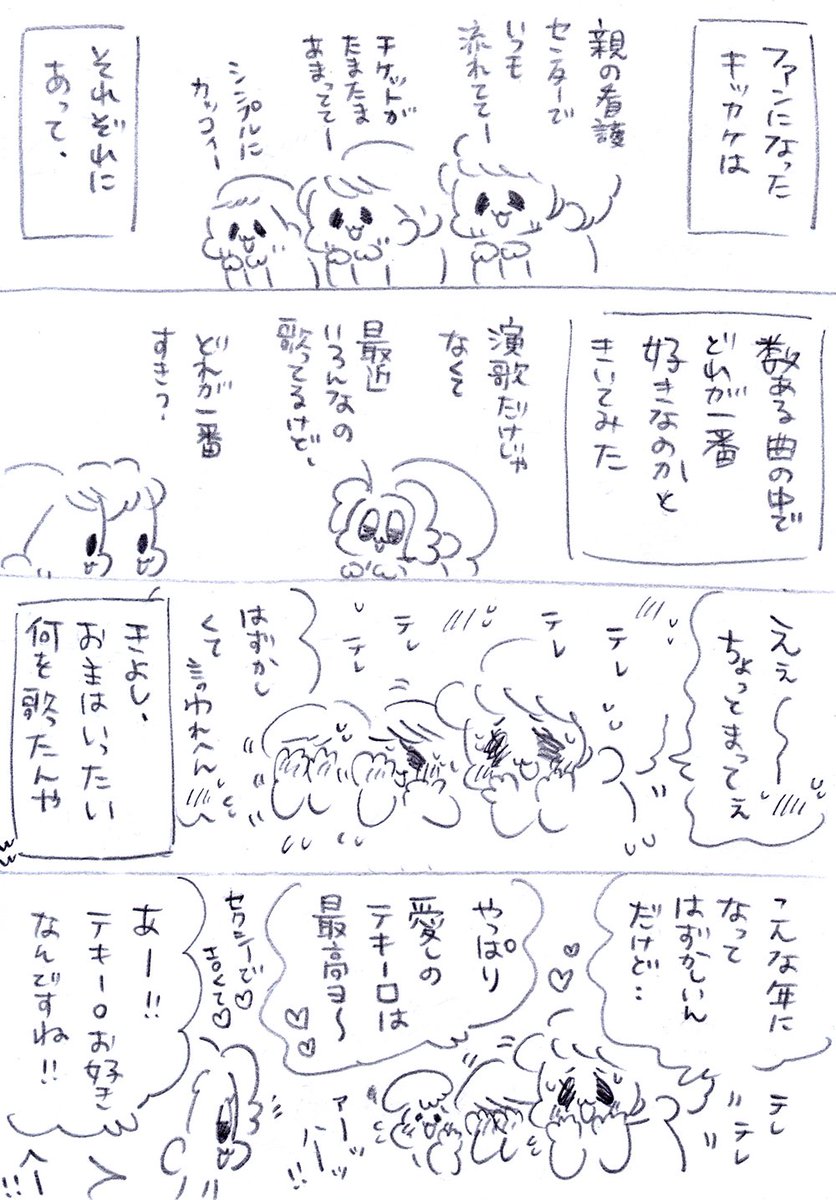 ファンになった
キッカケは
親の看護
センターで
いつも
流れててー
チケットが
たまたま
あまっててー
シンプルに
カッコイー
それぞれに
あって、
数ある曲の中で
どれが一番
好きなのかと
きいてみた
演歌だけじゃ
なくて
最近
いろんなの
歌ってるけど、
どれが一番
すきっ?
えぇ〜〜
ちょっとまってぇ
テレ
テレ
テレ
テレ
はずかし
くて
言われへん
きよし、
お主はいったい
何を歌ったんや
こんな年に
なって
はずかしいん
だけど…
テレ
テレ
やっぱり
愛しの
テキーロは
最高ヨ〜
セクシーで♡
よくて♡
アーッ
へーッ!!
あー!!
テキーロお好き
なんですね!!
へー!!